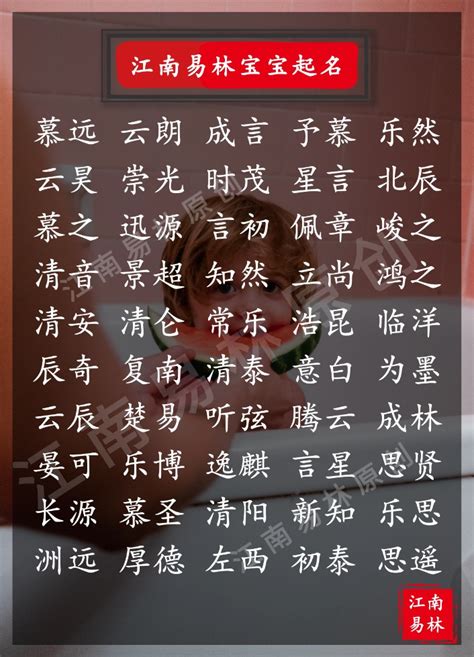 江南易林宝宝起名
慕远 云朗 成言 予慕 乐然
云昊 崇光 时茂 星言 北辰
慕之 迅源 言初 佩章 峻之
清音 景超 知然 立尚 鸿之
清安 清仑 常乐 浩昆 临洋
辰奇 复南 清泰 意白 为墨
云辰 楚易 听弦 腾云 成林
晏可 乐博 逸麒 言星 思贤
长源 慕圣 清阳 新知 乐思
洲远 厚德 左西 初泰 思遥
江南
易林
江南易林原创
江南易林原创
江南易林原创